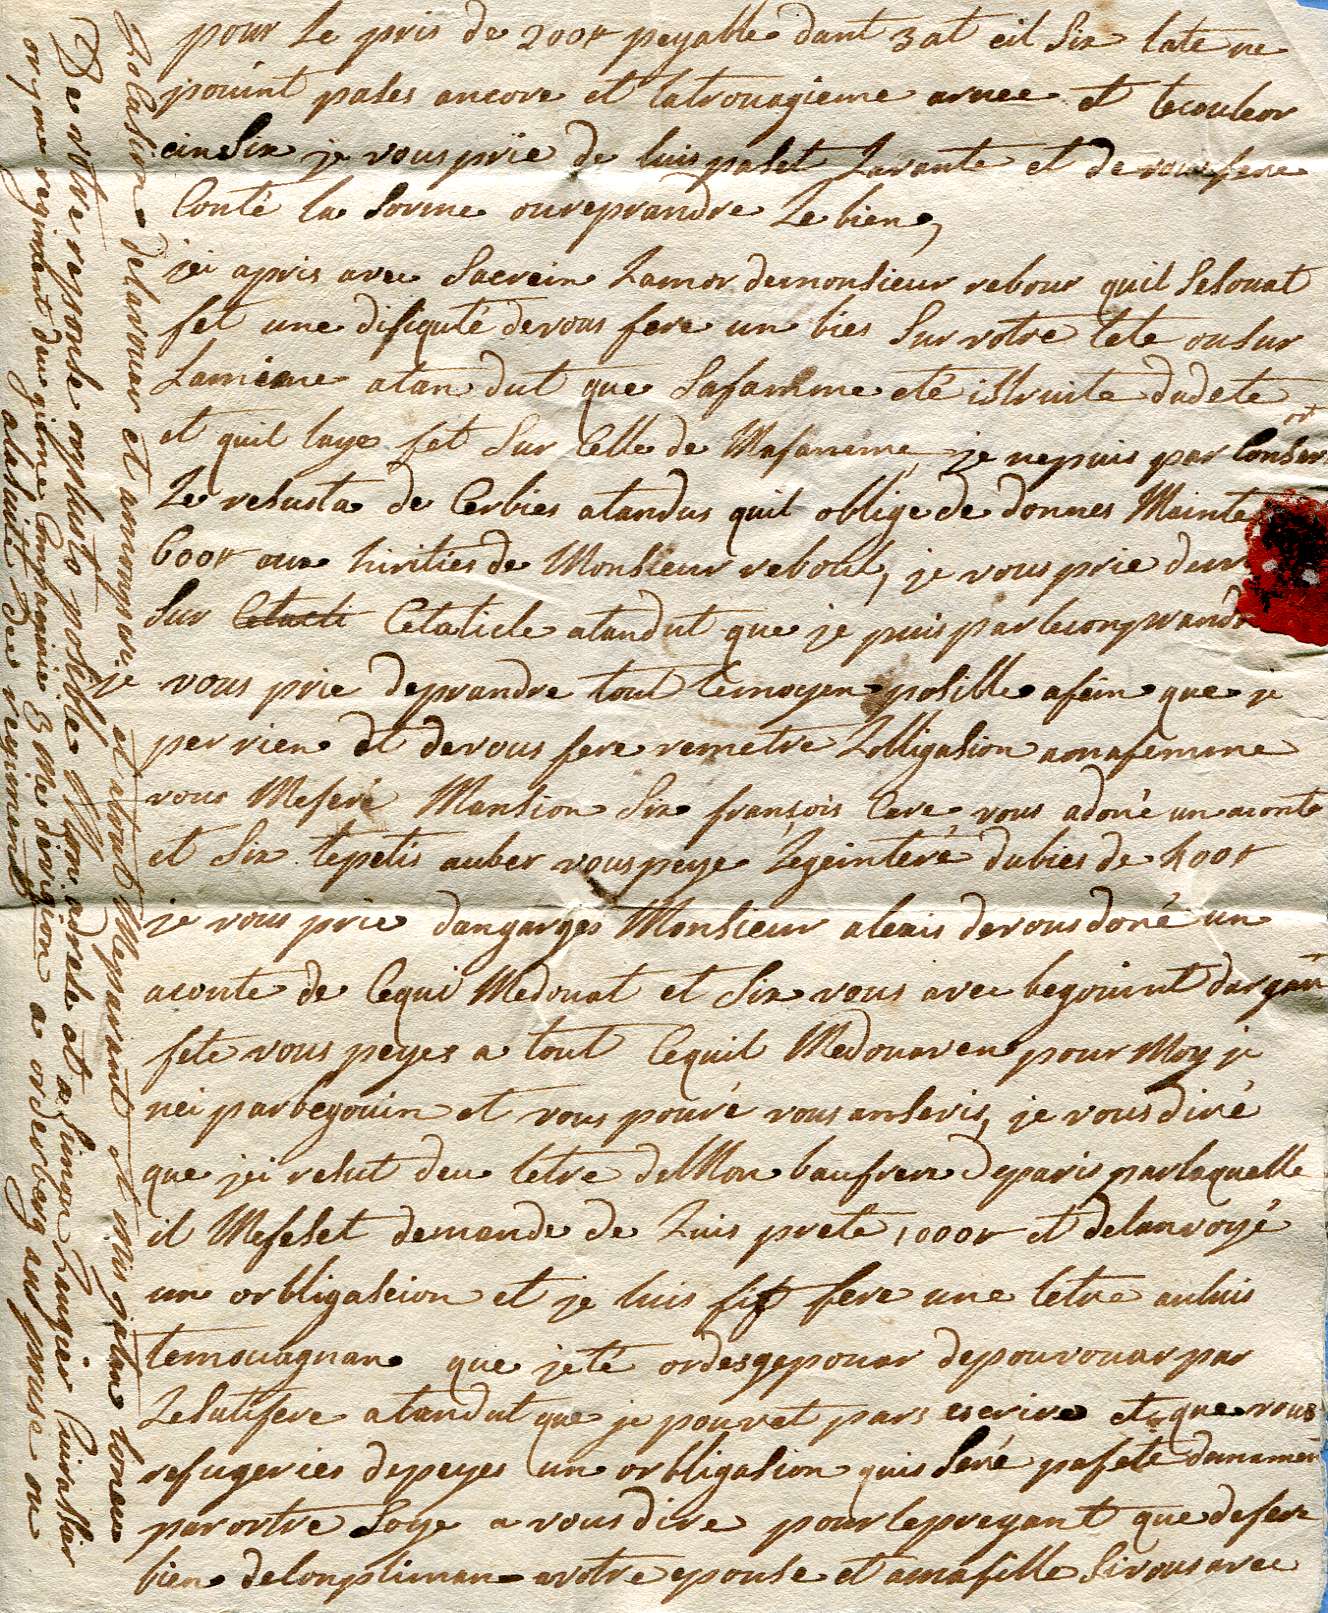 pour Le pris de 200# peyable dant 3 at cil Six late ne
pouint pases ancore et latrouagieme annee et lecouleor
ainSix je vous prie de luis paset Lavante et de vous fere
Conté la Somme oureprandre Le bien,
jei apris avec Sacrein Lamor demonsieur rebour quil Sesouat
fet une difiquté devous fere un bies Sur votre tete ou sur
Lamiene atan dut que Safamme eté istruite dudete
et quil laye fet Sur Celle de Mafamme, je nepuis par
Le resusta de Cerbies atandus quil oblige de donnes Mainte
600# aux hiritiés de Monsieur reboul, je vous prie
Sur Cetaticle atandut que je puis par lecomprandr
vous prie deprandre tout lemoyen posible afein que je
per rien et devous fere remetre Lobligasion amafemme
vous Meferé Mansion Six françois Care vous adoné un aconte
et Six lepetis auber vous peye Legeinteré dubies de 400#
je vous prie dangarges Monsieur alexis devous doné un
aconte de Cequi Medouat et Six vous avec begouint dargan
fete vous peyes a tout Cequil Medouaven pour Moy je
nei par begouin et vous pouré vous anservis, je vous diré
que jei resut deu letre deMon baufrere deparis par laquelle
il Mefeset demande de Luis preté 1000# et delanvoyé
un orbligaseion et je luis fit fere une letre anluis
temouagnan que jeté ordesgepouar depouvouar par
Lesatifere atandut que je pouvet pars escrire et que vous
refugeries depeyes un orbligasion quis Seré pafete
par ortre Soye a vous dire pour lepreyant que defere
bien delompliman avotre epouse et amafille Sivous avec
Locasion delavouar et amonyon et atout Meparant et voisgalan toneu
je
De votre reponse onpluto posible Mon adrese et a Simon Laugier Cuirasier
onyme regimant Companie 3me devigion a
alasuite des regimen